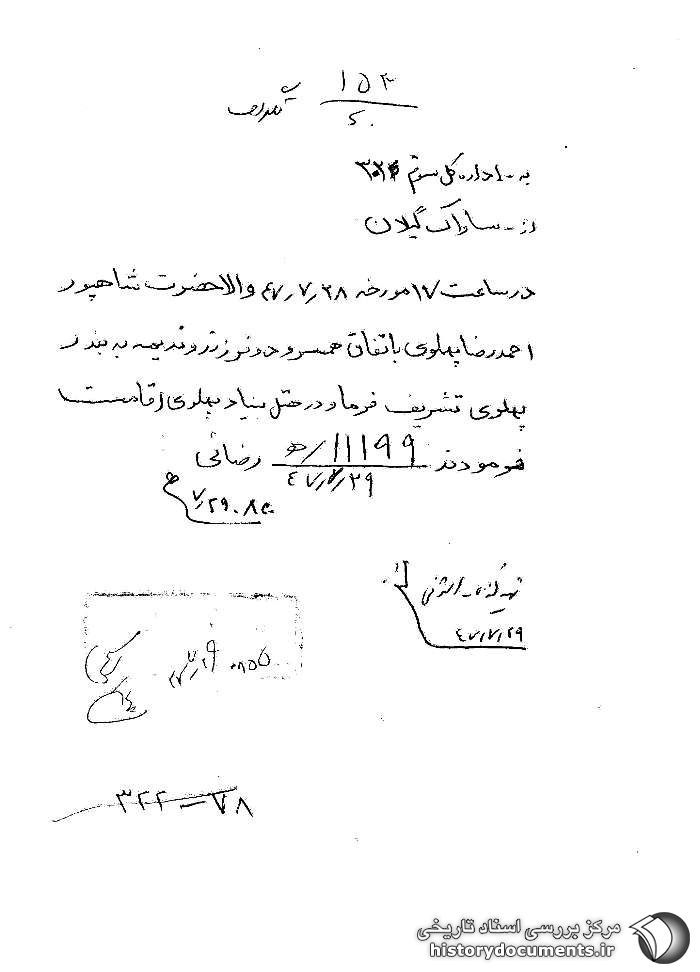 ۱۵۴
۴۰
تلگراف
به - اداره کل سوم ۳۰۲
از - ساواک گیلان
در ساعت ۱۷ مورخه ۴۷٫۷٫۲۸ والاحضرت شاهپور
احمدرضا پهلوی باتفاق همسر و دو نفر زن و ندیمه به بندر
پهلوی تشریف فرما و در هتل بنیاد پهلوی اقامت
فرمودند ۱۱۱۹۹/ه رضائی
۴۷٫۷٫۲۹
۷٫۲۹
۴۷٫۷٫۲۹
۳۲۲-۷۸
مرکز بررسی اسناد تاریخی
historydocuments.ir